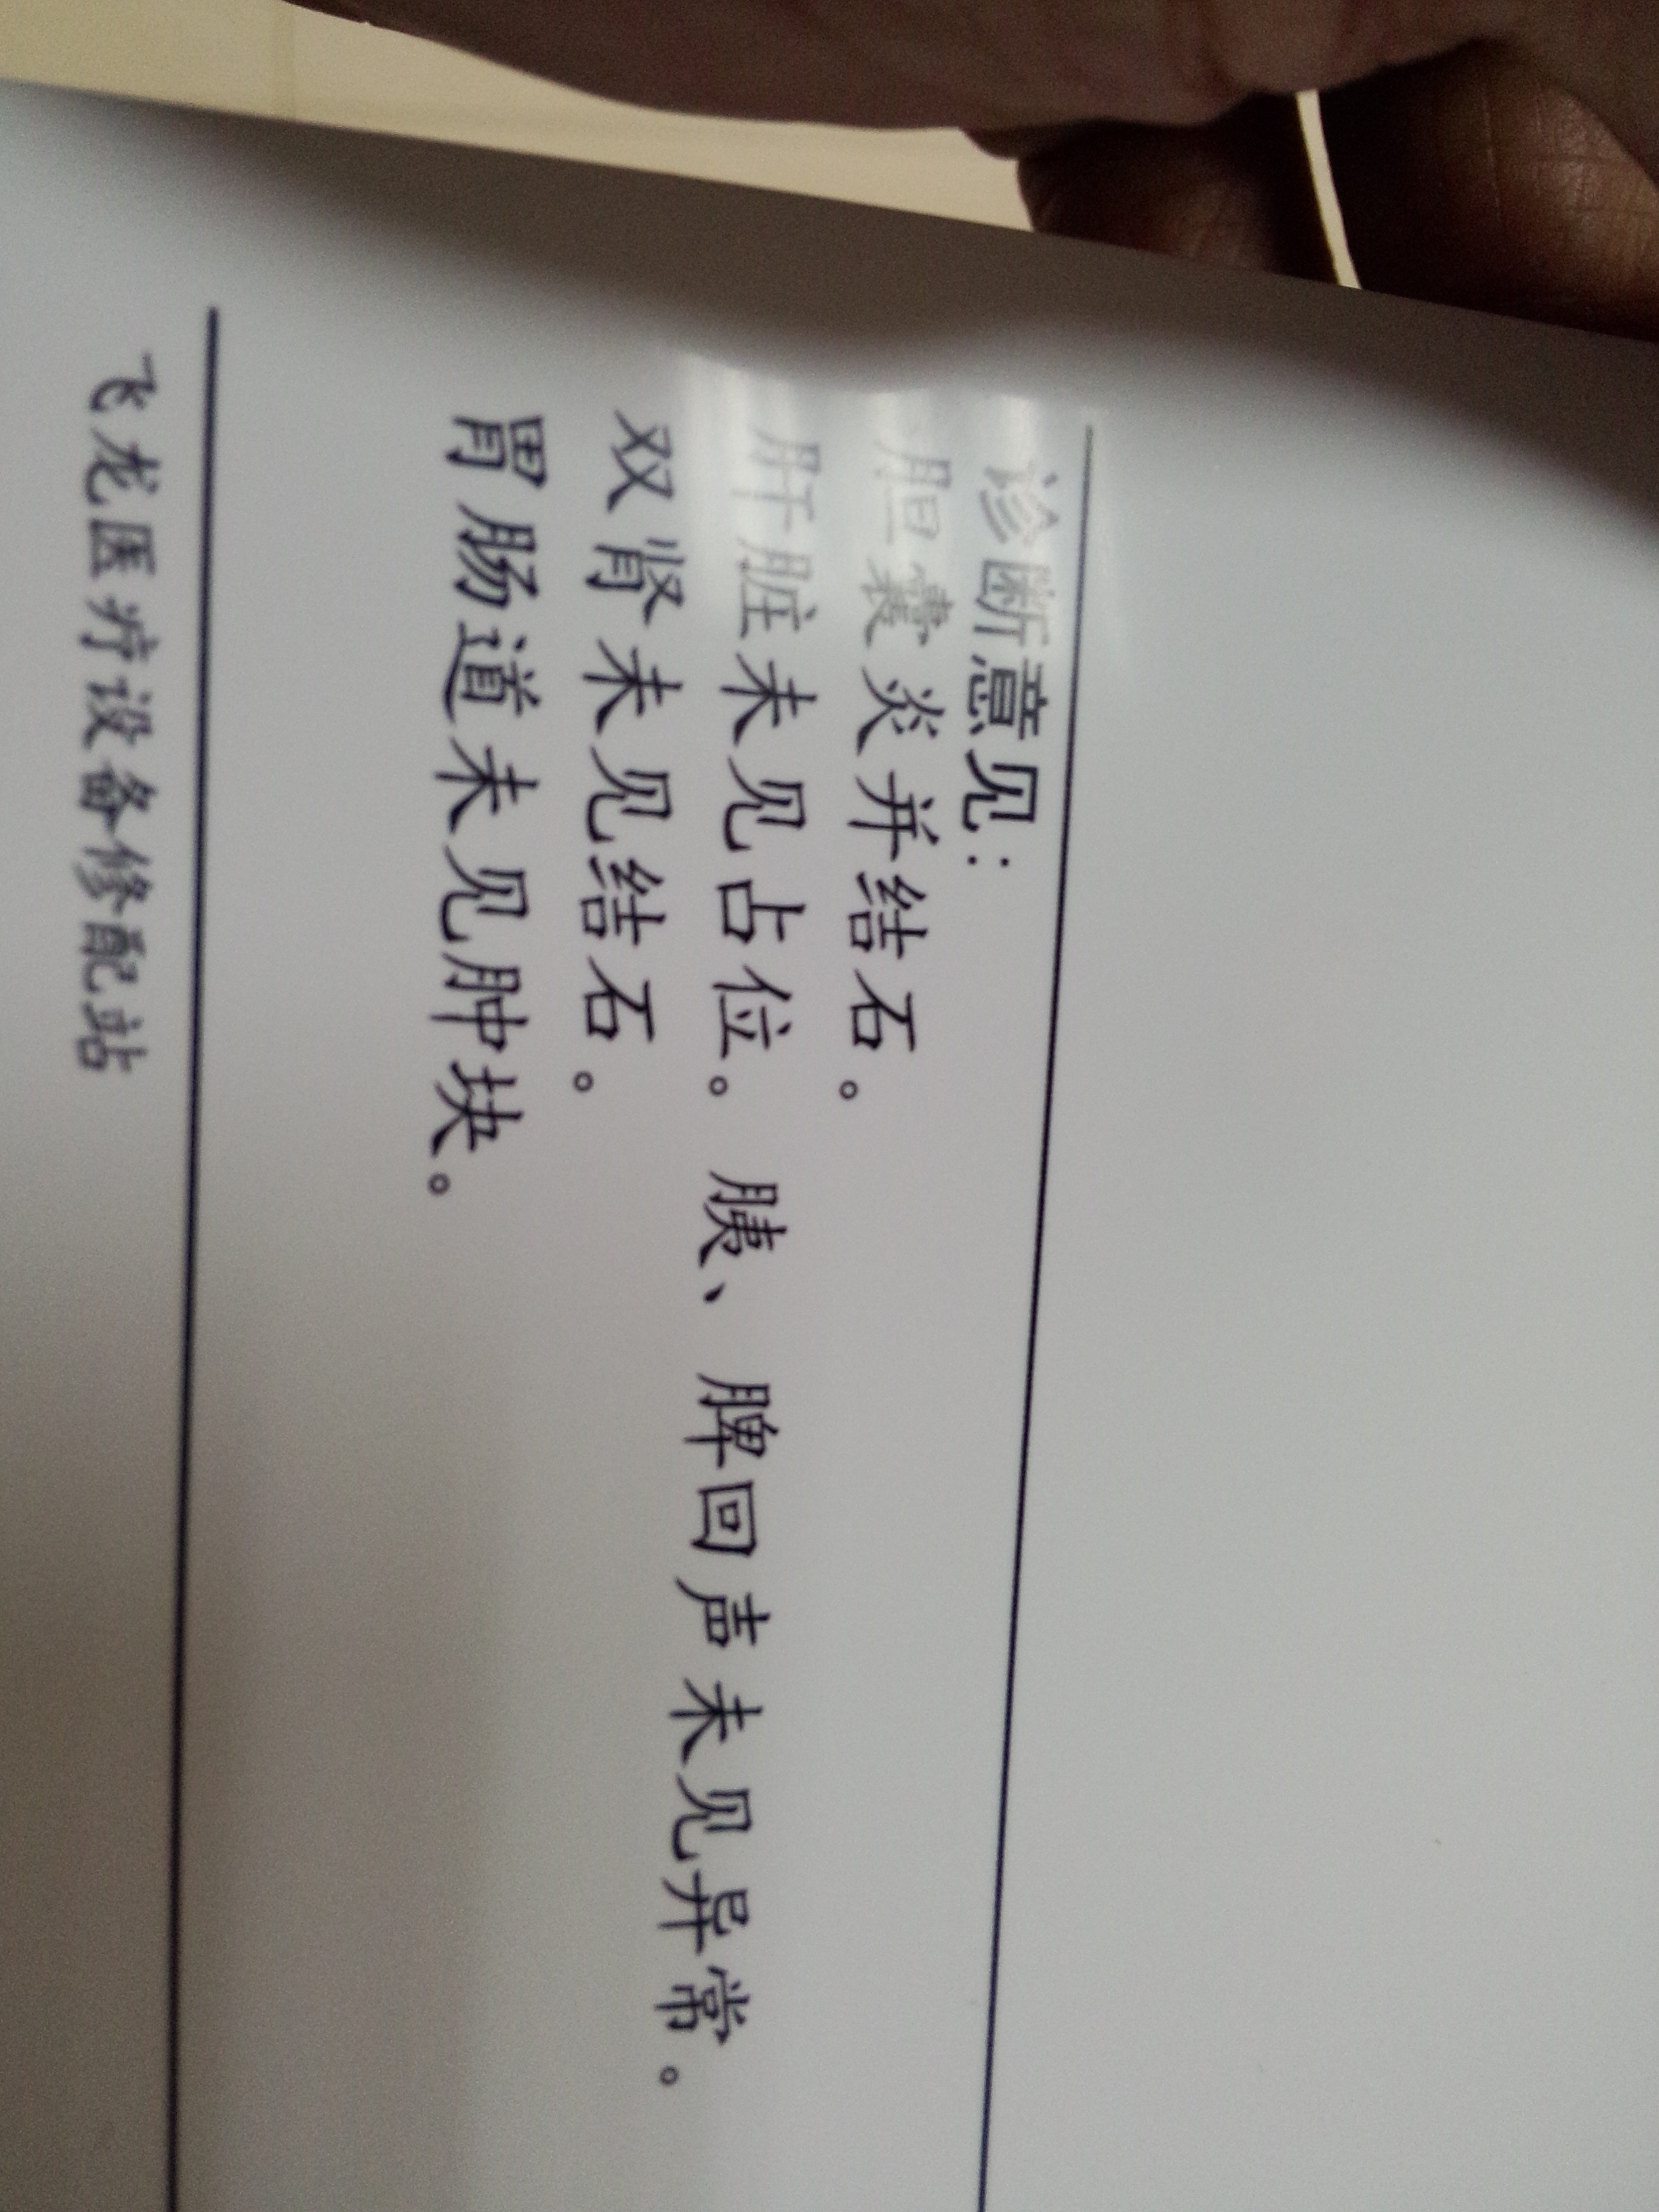 诊断意见：
胆囊炎并结石。
肝脏未见占位。胰、脾回声未见异常。
双肾未见结石。
胃肠道未见肿块。
飞龙医疗设备修配站